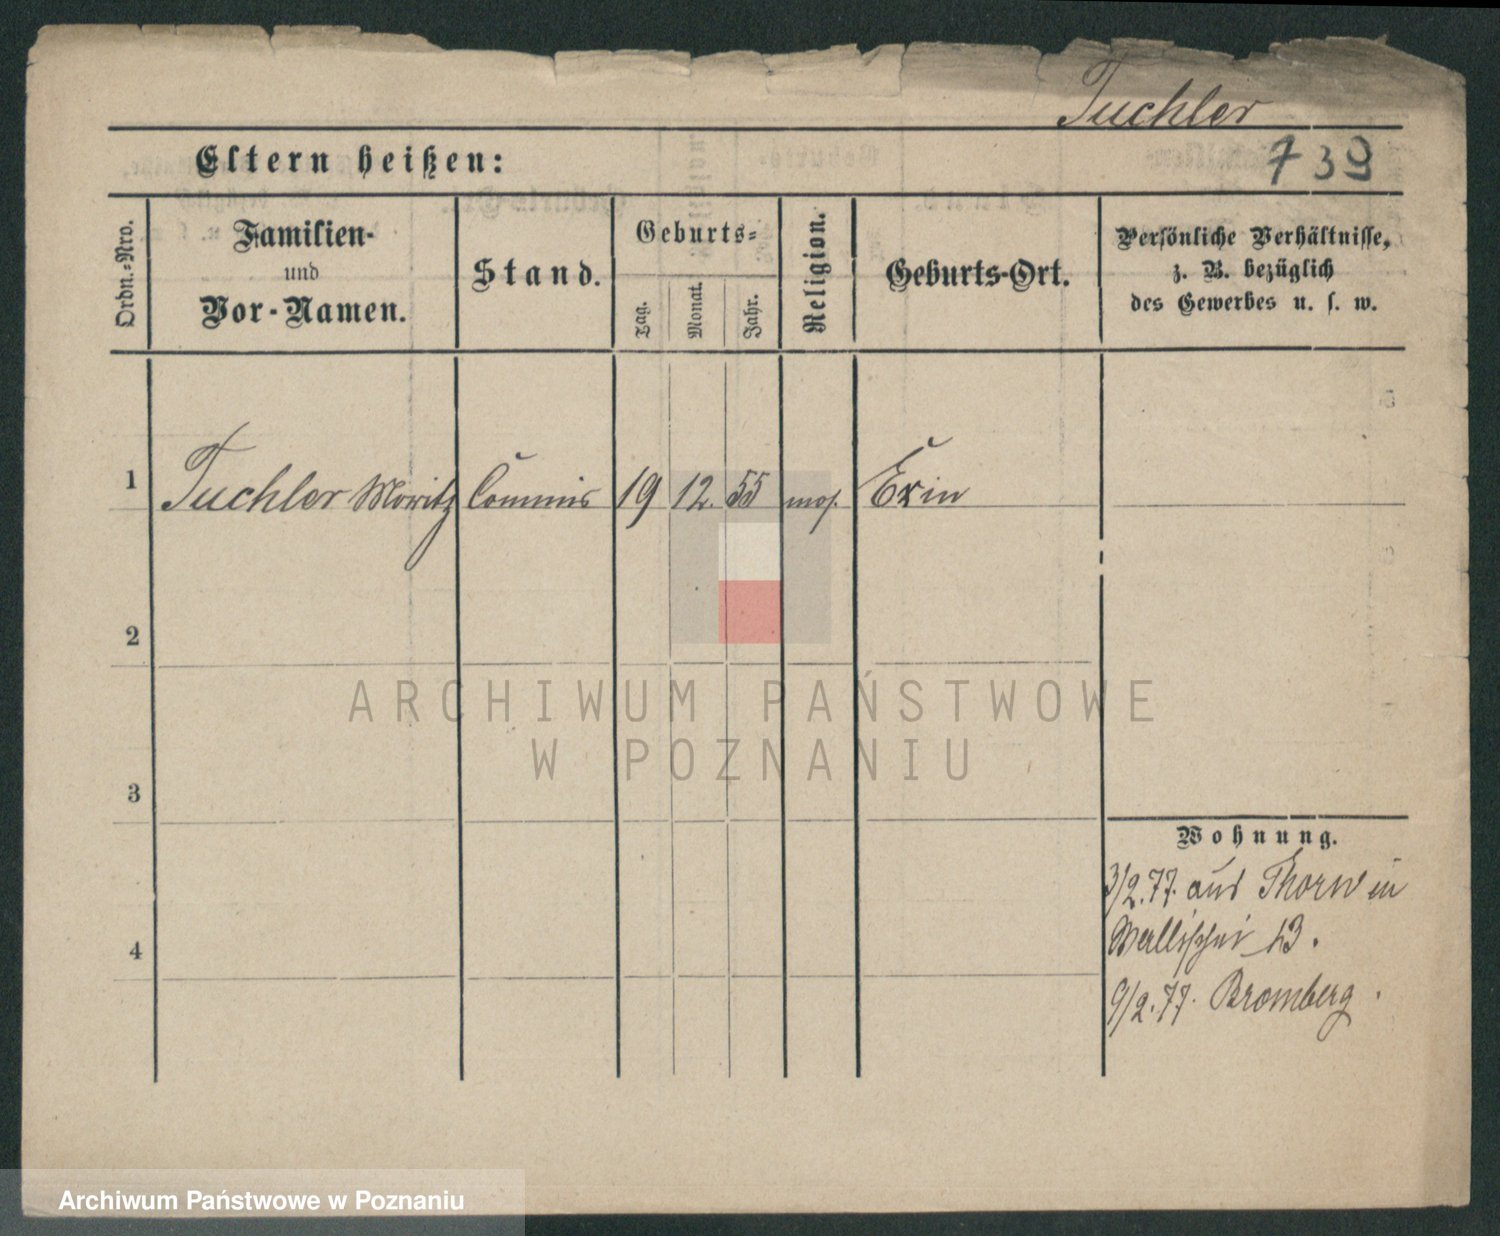 Tuchler
Eltern heißen:
739
Ordn.-Nro.
Familien-
und
Vor-Namen.
Stand.
Geburts-
Tag.
Monat.
Jahr.
Religion.
Geburts-Ort.
Persönliche Verhältnisse,
z. B. bezüglich
des Gewerbes u. s. w.
1 Tuchler Moritz Commis 19 12. 55 mos. Exin
2
3
4
Wohnung.
3/2.77. aus Thorn in
Wallischei 43.
9/2.77. Bromberg.
ARCHIWUM PAŃSTWOWE
W POZNANIU
Archiwum Państwowe w Poznaniu